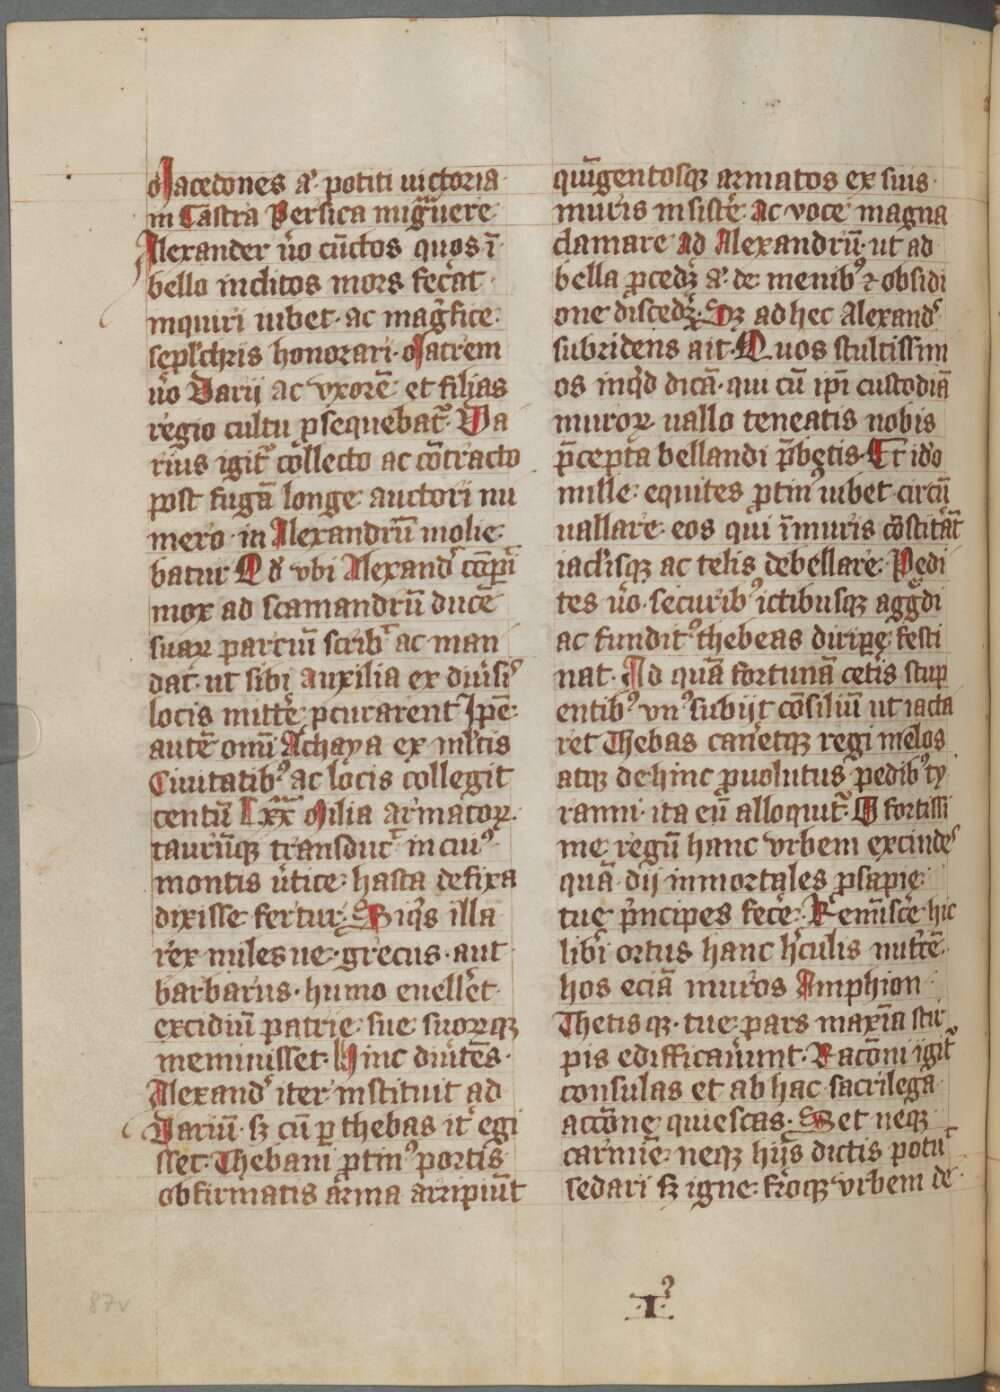 Macedones a͛· potiti uictoria·
in Castra Persica migᷓuere
Alexander u̾o cūctos quos ī·
bello inclitos mors fec̾at·
inquiri iubet· ac mag̾fice·
sepl'chris honorari· Matrem
u̾o Darii ac vxorē· et filias
regio cultu ꝓsequebat᷑· Da
rius igit᷑ collecto ac cōtracto
post fugā longe auctori nu
mero· in Alexandrū molie·
batur Qd̾ vbi Alexand̾ cōꝑi
mox ad scamandrū ducē
suaꝝ parciū scrib᷑ ac man
dat· ut sibi auxilia ex diu̾si᷒
locis mitt̾e ꝓcurarent Ip̄e·
autē omī Achaya ex ml̾tis
Ciuitatib᷒ ac locis collegit
centū Lxx Milia armatoꝝ·
taurūqꝫ transduc᷑ in cui᷒
montis u̾tice· hasta defixa
dixisse fertur· Siq̾s illa
rex miles ue· grecus· aut
barbarus· humo euell̾et·
excidiū patrie· sue· suoꝝqꝫ
meminisset· Hinc diu̾tēs·
Alexand̾ iter instituit ad
Dariū· sꝫ cū ꝑ thebas it̾ egi
sset· Thebani ꝓtin᷒ portis
obfirmatis arma arripiūt
quīgentosqꝫ armatos ex suis·
muris insist̾e· ac voce magna
clamare ad Alexandrū· ut ad
bella ꝓcedꝫ a͛· de menib᷒ ⁊ obsidi
one discedꝫ· Sꝫ ad hec Alexand᷒
subridens ait· Quos stultissim
os inq̾d dicā· qui cū ip̄i custodiā
muroꝝ uallo teneatis nobis
p̄cepta bellandi p̄betis· Et id̾o
mille· equites ꝓtin᷒ iubet circū
uallare· eos qui ī muris cōstit̾āt
iacl'isqꝫ ac telis debellare· Pedi
tes u̾o· securib᷒ ictibusqꝫ agg̾di
ac fundit᷒ thebeas diripe festi
nat· Ad quā fortunā cetis stup
entib᷒ vn᷒ subiit cōsiliū ut iacta
ret Thebas can̾etqꝫ regi melos
atqꝫ dehinc prouolutus pedib᷒ ty
ranni· ita eū alloquit᷑· O fortissi
me regū hanc vrbem excinde᷒
quā dij inmortales ꝓsapie·
tue p̾ncipes fec̾e· Remīsc̾e hic
lib̾i ortus hanc h̾culis nutr̾e·
hos eciā muros Amphion
Thetis qꝫ· tue· pars maxīa stir
pis edifficau̾unt· Racōni igit᷑
consulas et ab hac sacrilega
accōne quiescas· Set neqꝫ
carmīe· neqꝫ hijs dictis potu᷑
sedari sꝫ igne· fr̾oqꝫ vrbem de
·I·᷒
87v